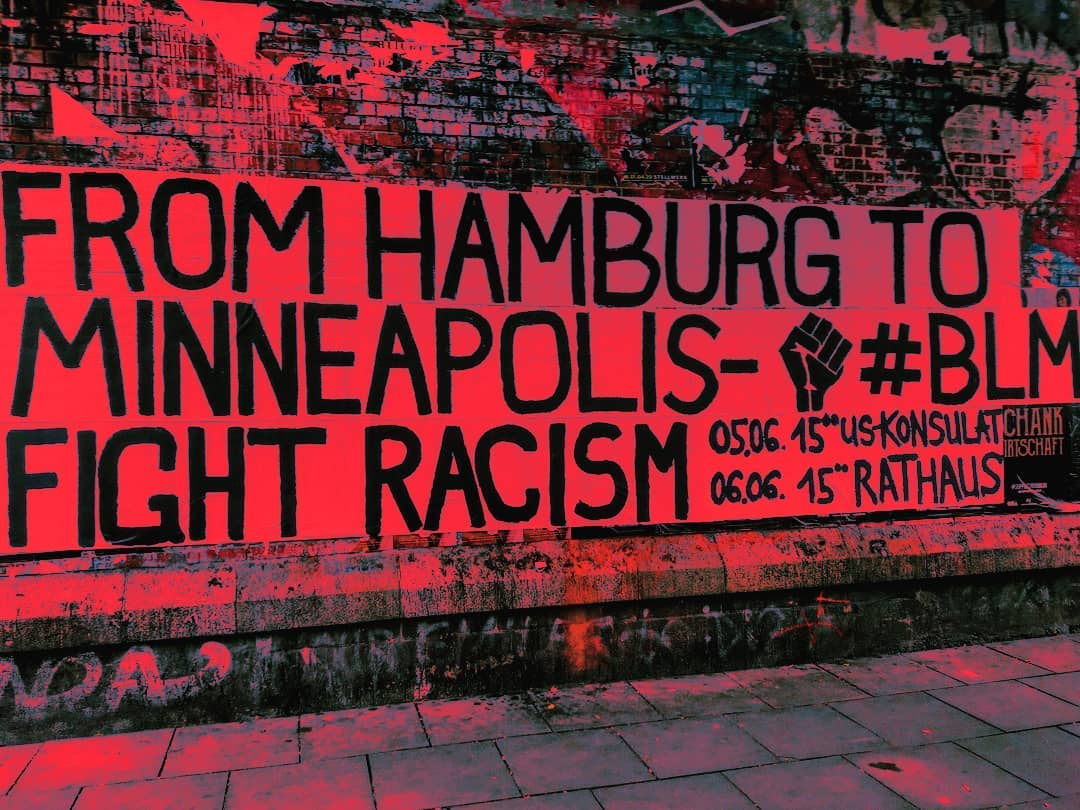 FROM HAMBURG TO
MINNEAPOLIS-✊#BLM
FIGHT RACISM
05.06. 15°° US-KONSULAT
06.06. 15°° RATHAUS
CHANK
IRTSCHAFT